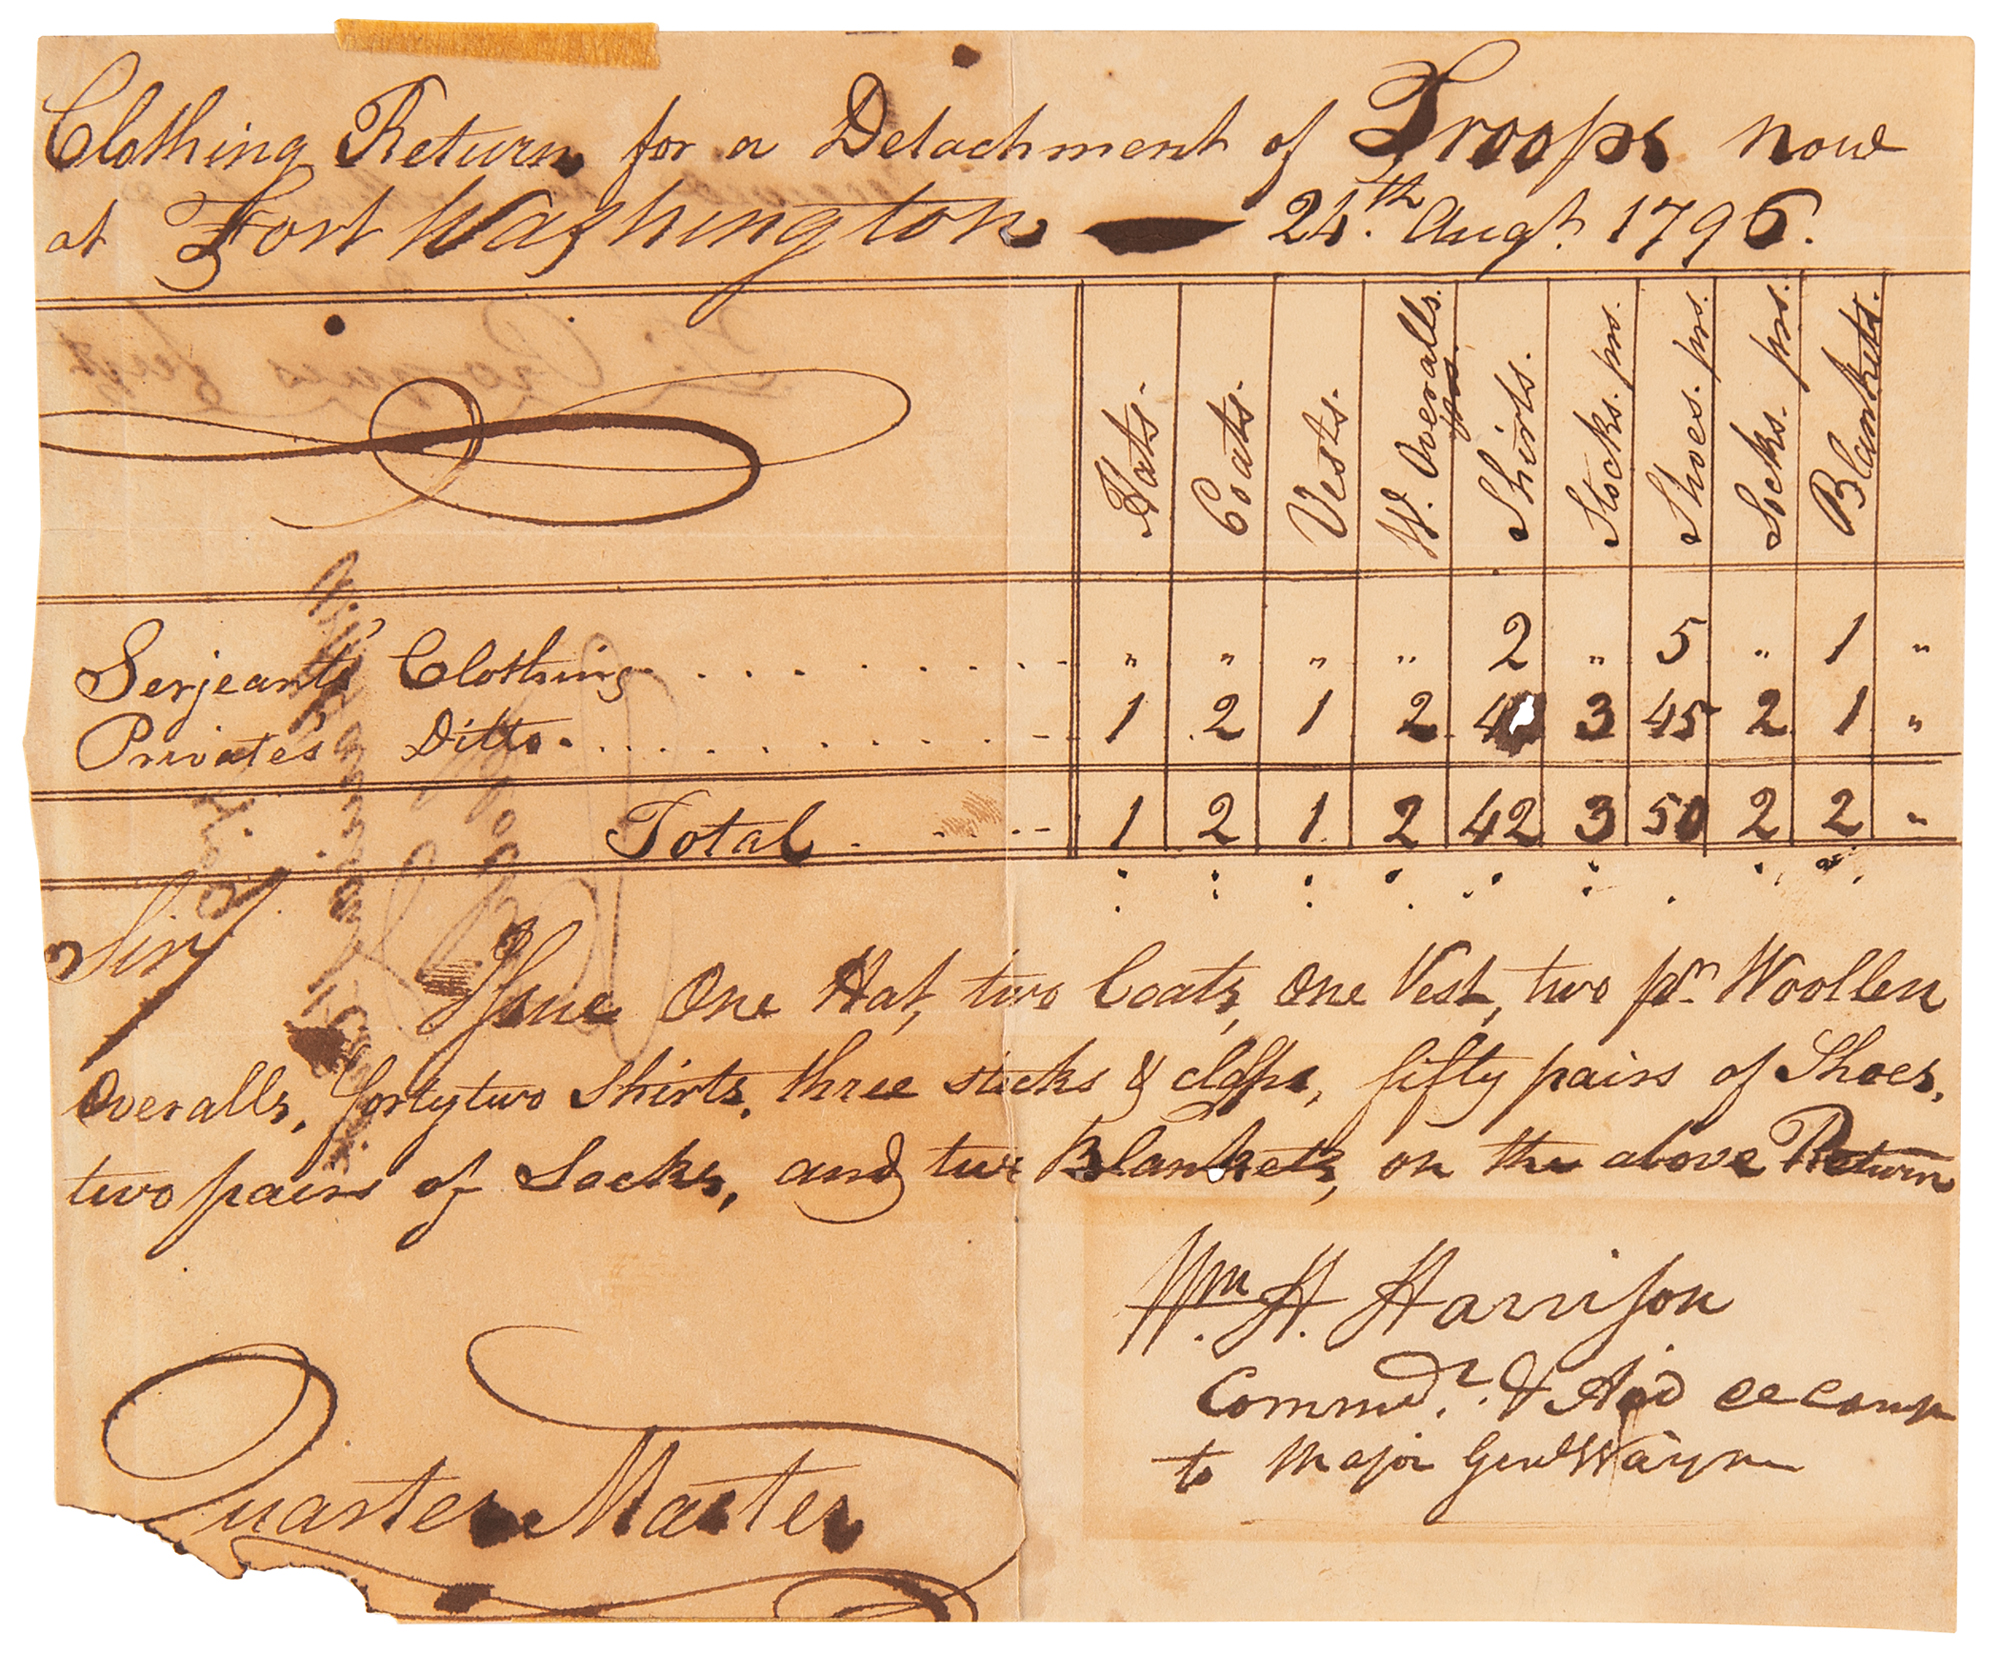 Clothing Return for a Detachment of Troops now
at Fort Washington 24th. Augt. 1796.
Hats. Coats. Vests. W. Overalls. prs. Shirts. Stocks. prs. Shoes. prs. Socks. prs. Blankets.
Serjeants' Clothing . . . . . . . . „ „ „ „ 2 „ 5 „ 1 „
Privates' Ditto . . . . . . . . . . 1 2 1 2 40 3 45 2 1 „
Total . . . . . 1 2 1 2 42 3 50 2 2 „
Sir/
Issue One Hat, two Coats, One Vest, two pr. Woollen
Overalls, forty two Shirts, three stocks & clasps, fifty pairs of Shoes,
two pairs of Socks, and two Blankets, on the above Return
Wm. H. Harrison
Commdr. & Aid de camp
to Major Genl Wayne
Quarter Master